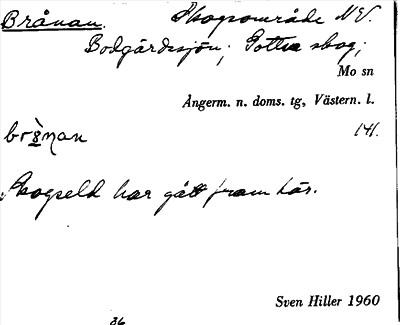 Brånan. Skogsområde N.V.
Bodgårdssjön; Gottne skog;
Mo sn
Ångerm. n. doms. tg, Västern. l.
141.
Skogseld har gått fram här.
Sven Hiller 1960
86